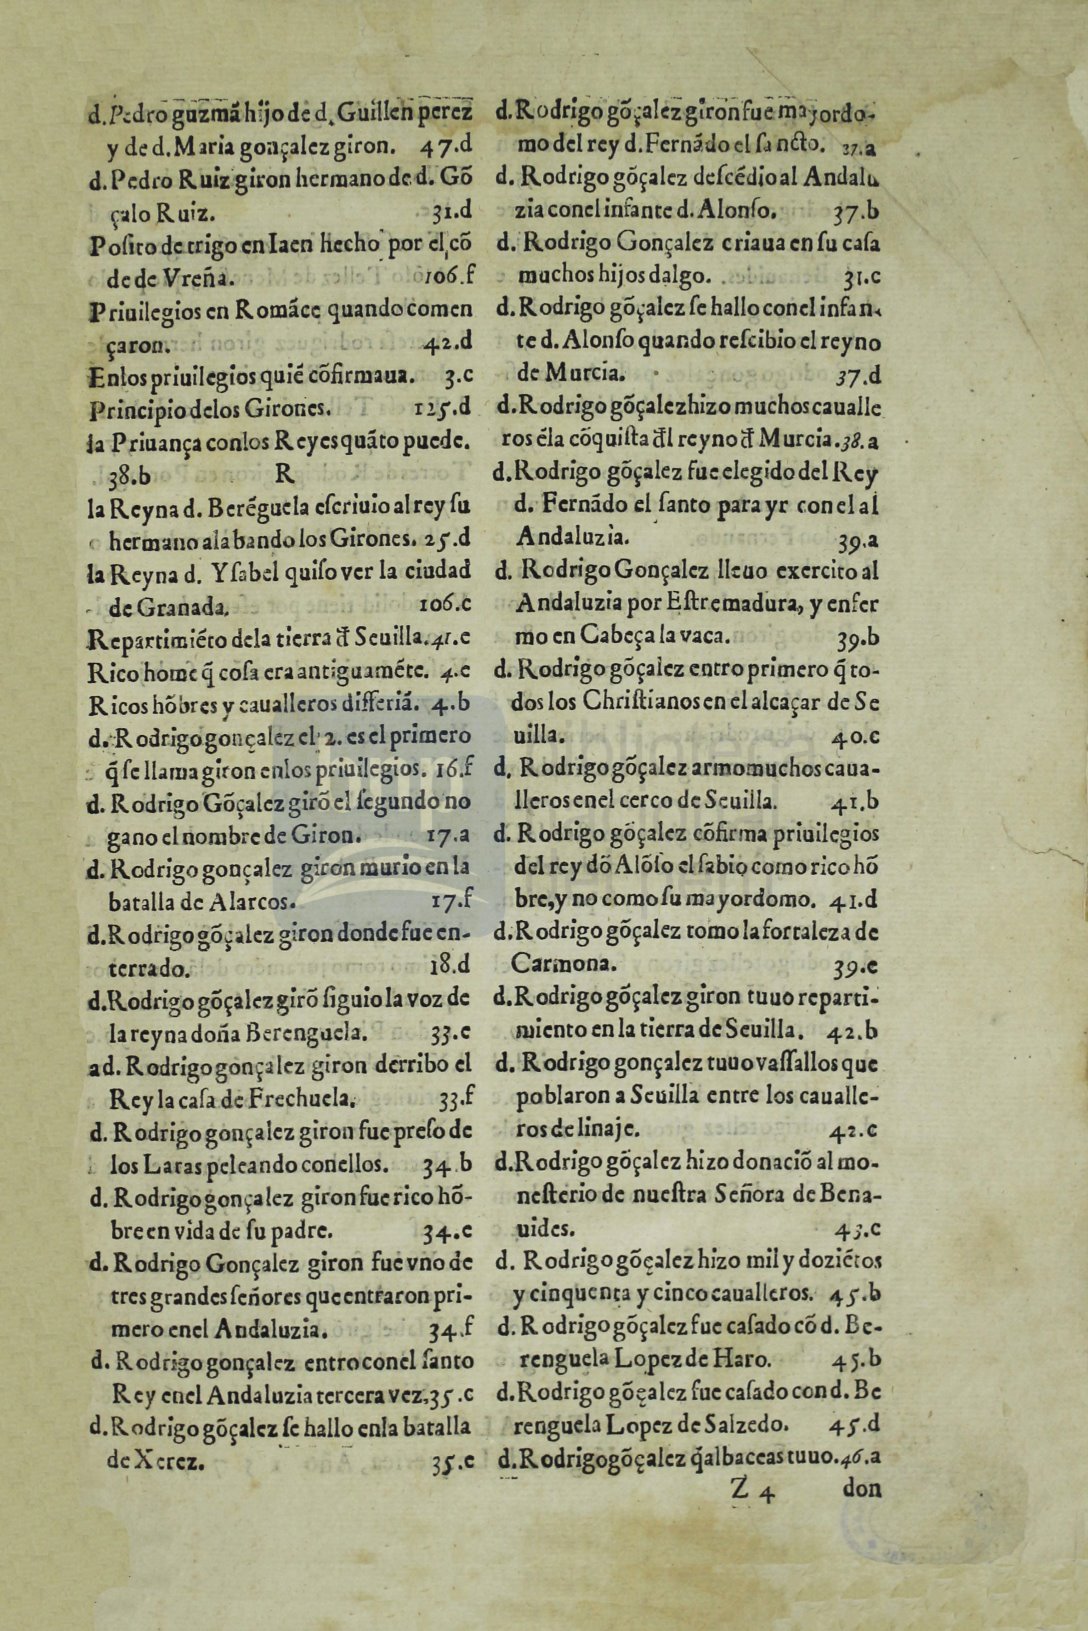 d. Pedro guzmã hijo de d. Guillen perez
y de d. Maria gonçalez giron. 47.d
d. Pedro Ruiz giron hermano de d. Gõ
çalo Ruiz. 31.d
Posito de trigo en Iaen hecho por el cõ
de de Vreña. 106.f
Priuilegios en Romãce quando comen
çaron. 42.d
Enlos priuilegios quiẽ cõfirmaua. 3.c
Principio delos Girones. 125.d
la Priuança conlos Reyes quãto puede.
38.b
R
la Reyna d. Berẽguela escriuio al rey su
hermano alabando los Girones. 25.d
la Reyna d. Ysabel quiso ver la ciudad
de Granada. 106.c
Repartimiẽto dela tierra d̃ Seuilla. 41.e
Rico home q̃ cosa era antiguamẽte. 4.e
Ricos hõbres y caualleros differiã. 4.b
d. Rodrigo gonçalez el 2. es el primero
q̃ se llama giron enlos priuilegios. 16.f
d. Rodrigo Gõçalez girõ el segundo no
gano el nombre de Giron. 17.a
d. Rodrigo gonçalez giron murio en la
batalla de Alarcos. 17.f
d. Rodrigo gõçalez giron donde fue en-
terrado. 18.d
d. Rodrigo gõçalez girõ siguio la voz de
la reyna doña Berenguela. 33.e
a d. Rodrigo gonçalez giron derribo el
Rey la casa de Frechuela. 33.f
d. Rodrigo gonçalez giron fue preso de
los Laras peleando conellos. 34.b
d. Rodrigo gonçalez giron fue rico hõ-
bre en vida de su padre. 34.e
d. Rodrigo Gonçalez giron fue vno de
tres grandes señores que entraron pri-
mero enel Andaluzia. 34.f
d. Rodrigo gonçalez entro conel santo
Rey enel Andaluzia tercera vez, 35.c
d. Rodrigo gõçalez se hallo enla batalla
de Xerez. 35.e
d. Rodrigo gõçalez giron fue mayordo-
mo del rey d. Fernãdo el sancto. 37.a
d. Rodrigo gõçalez descẽdio al Andalu
zia conel infante d. Alonso. 37.b
d. Rodrigo Gonçalez criaua en su casa
muchos hijos dalgo. 31.c
d. Rodrigo gõçalez se hallo conel infan-
te d. Alonso quando rescibio el reyno
de Murcia. 37.d
d. Rodrigo gõçalez hizo muchos caualle
ros ẽla cõquista d̃l reyno d̃ Murcia. 38.a
d. Rodrigo gõçalez fue elegido del Rey
d. Fernãdo el santo para yr con el al
Andaluzia. 39.a
d. Rodrigo Gonçalez lleuo exercito al
Andaluzia por Estremadura, y enfer
mo en Cabeça la vaca. 39.b
d. Rodrigo gõçalez entro primero q̃ to-
dos los Christianos en el alcaçar de Se
uilla. 40.c
d. Rodrigo gõçalez armo muchos caua-
lleros enel cerco de Seuilla. 41.b
d. Rodrigo gõçalez cõfirma priuilegios
del rey dõ Alõso el sabio como rico hõ
bre, y no como su mayordomo. 41.d
d. Rodrigo gõçalez tomo la fortaleza de
Carmona. 39.e
d. Rodrigo gõçalez giron tuuo reparti-
miento en la tierra de Seuilla. 42.b
d. Rodrigo gonçalez tuuo vassallos que
poblaron a Seuilla entre los caualle-
ros de linaje. 42.c
d. Rodrigo gõçalez hizo donaciõ al mo-
nesterio de nuestra Señora de Bena-
uides. 43.c
d. Rodrigo gõçalez hizo mil y doziẽtos
y cinquenta y cinco caualleros. 45.b
d. Rodrigo gõçalez fue casado cõ d. Be-
renguela Lopez de Haro. 45.b
d. Rodrigo gõçalez fue casado con d. Be
renguela Lopez de Salzedo. 45.d
d. Rodrigo gõçalez q̃ albaceas tuuo. 46.a
Z 4 don